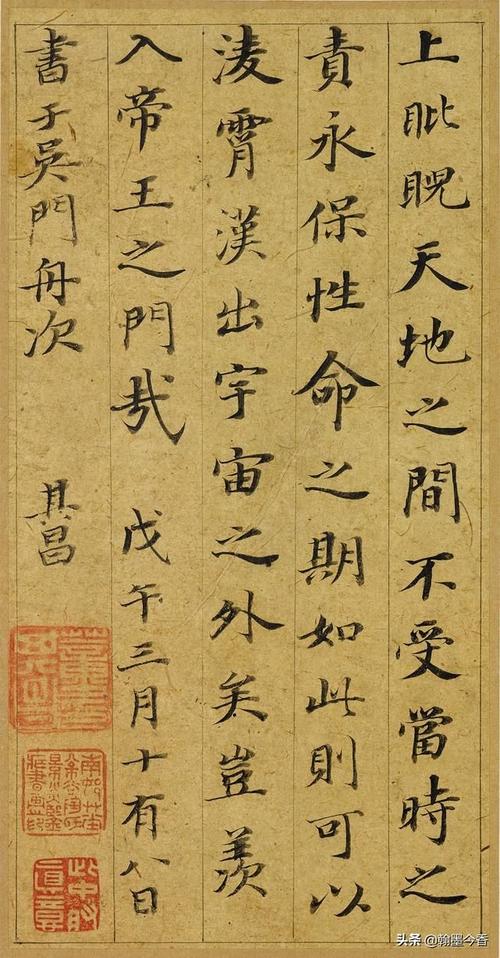 上睥睨天地之間不受當時之
責永保性命之期如此則可以
淩霄漢出宇宙之外矣豈羨
入帝王之門哉 戊午三月十有八日
書于吳門舟次 其昌
頭条 @翰墨今香